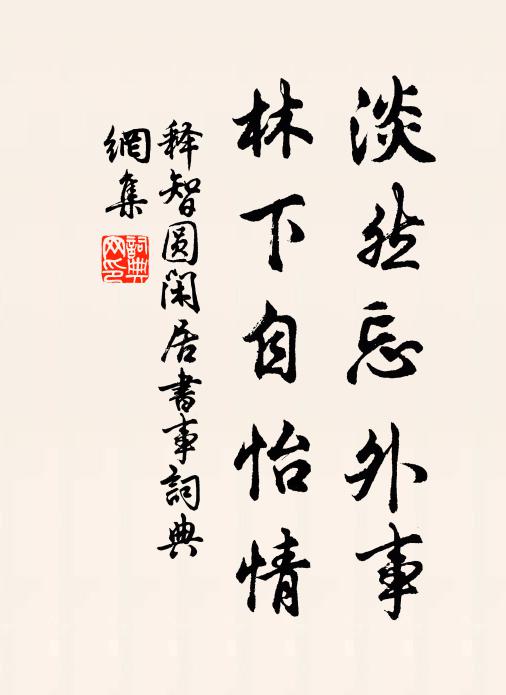 淡然忘外事
林下自怡情
释智圆闲居書事詞典
網集
詞典
网印